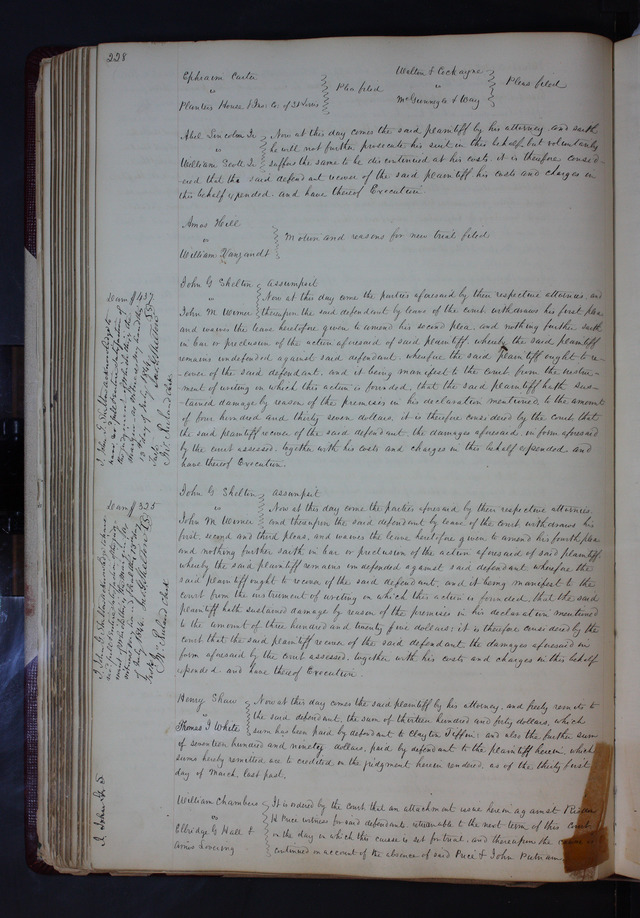 228
Ephraim Carter
vs
Planters House & Ins. Co. of St Louis
Plea filed
Walton & Cockayne
vs
McGunnegle & Way
Pleas filed
Abel Lincoln Jr Now at this day comes the said plaintiff by his attorney and saith
vs he will not further prosecute his suit in this behalf but voluntarily
William Scott Jr suffers the same to be discontinued at his costs, it is therefore consid-
ered that the said defendant recover of the said plaintiff his costs and charges in
this behalf expended and have thereof Execution
Amos Hill
vs
William
Motion and reasons for new trial filed
John G Shelton assumpsit
vs Now at this day come the parties aforesaid by their respective attornies, and
John M Wimer thereupon the said defendant by leave of the court withdraws his first plea
and waives the leave heretofore given to amend his second plea, and nothing further saith
in bar or preclusion of the action aforesaid of said plaintiff, whereby the said plaintiff
remains undefended against said defendant. wherefore the said plaintiff ought to re-
cover of the said defendant, and it being manifest to the court from the instru-
ment of writing on which this action is founded, that the said plaintiff hath sus-
tained damage by reason of the premises in his declaration mentioned, to the amount
of four hundred and thirty seven dollars, it is therefore considered by the court that
the said plaintiff recover of the said defendant, the damages aforesaid, in form aforesaid
by the court assessed, together with his costs and charges in this behalf expended, and
have thereof Execution.
Dam $437
I John G Shelton acknowledge to
have
the judgment
John G Shelton
Test
Jno Ruland clerk
John G Shelton assumpsit
vs Now at this day come the parties aforesaid by their respective attornies,
John M Wimer and thereupon the said defendant by leave of the court withdraws his
first, second and third pleas, and waives the leave heretofore given to amend his fourth plea
and nothing further saith in bar or preclusion of the action aforesaid of said plaintiff
whereby the said plaintiff remains undefended against said defendant wherefore the
said plaintiff ought to recover of the said defendant, and it being manifest to the
court from the instrument of writing on which this action is founded, that the said
plaintiff hath sustained damage by reason of the premises in his declaration mentioned
to the amount of three hundred and twenty five dollars; it is therefore considered by the
court that the said plaintiff recover of the said defendant, the damages aforesaid in
form aforesaid by the court assessed, together with his costs and charges in this behalf
expended and have thereof Execution
Dam $325
I John G Shelton
Jno Ruland clerk
Henry Shaw Now at this day comes the said plaintiff by his attorney, and freely remits to
vs the said defendant, the sum of thirteen hundred and forty dollars, which
Thomas J White sum has been paid by defendant to Clayton Tiffin; and also the further sum
of seventeen hundred and ninety dollars, paid by defendant to the plaintiff herein, which
sums hereby remitted are to credited on the judgment herein rendered, as of the thirty first
day of March last past.
William Chambers It is ordered by the court that an attachment issue herein against
vs H Price witness for said defendants, returnable to the next term of this court
Elbridge G Hall & on the day on which this cause is set for trial, and thereupon the cause is
Amos Lovering continued on account of the absence of said Price & John Putnam
I John G S